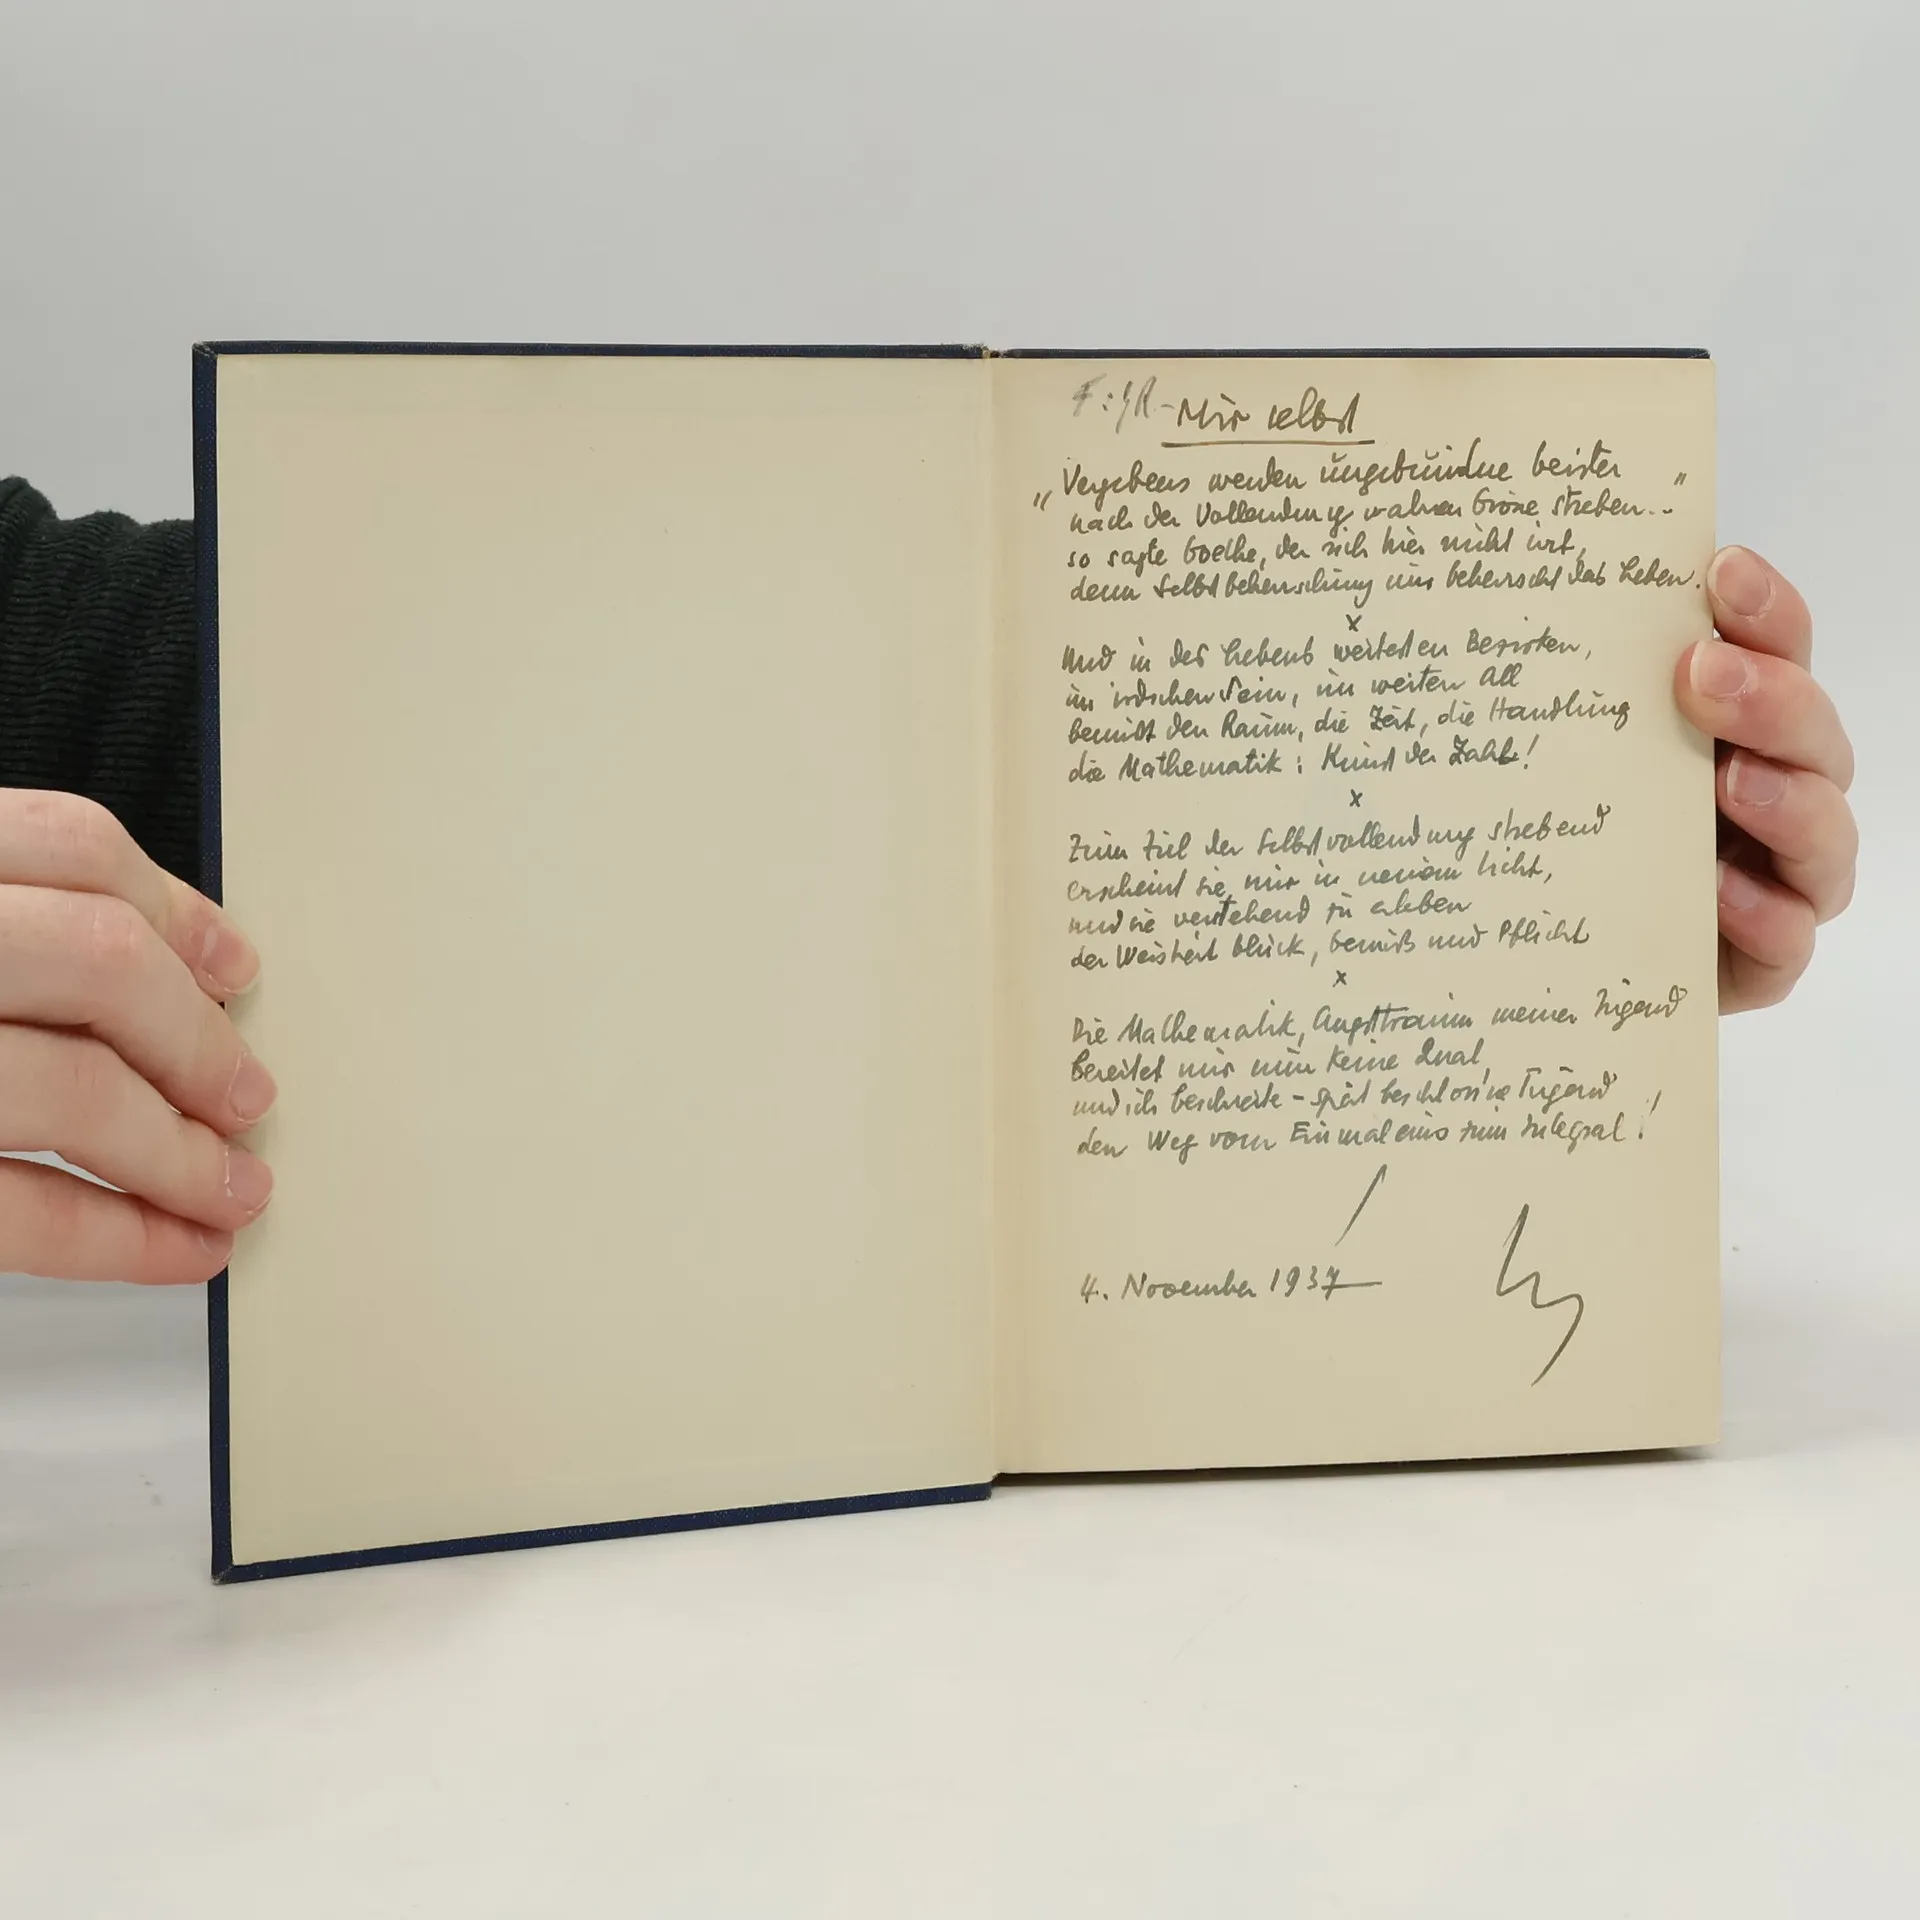 Mir selbst
„Vergebens werden ungebundne Geister
nach der Vollendung wahrer Grösse streben..."
so sagte Goethe, der sich hier nicht irrt,
denn Selbstbeherrschung nur beherrscht das Leben.
x
Und in des Lebens weitesten Bezirken,
im irdschen Sein, im weiten All
bemißt den Raum, die Zeit, die Handlung
die Mathematik: Kunst der Zahl!
x
Zum Ziel der Selbstvollendung strebend
erscheint sie mir in neuem Licht,
und sie verstehend zu erleben
der Weisheit Glück, Genuß und Pflicht
x
Die Mathematik, Angsttraum meiner Jugend
bereitet mir nun keine Qual,
und ich beschreite - spät beschloss'ne Tugend
den Weg vom Einmaleins zum Integral!
4. November 1937